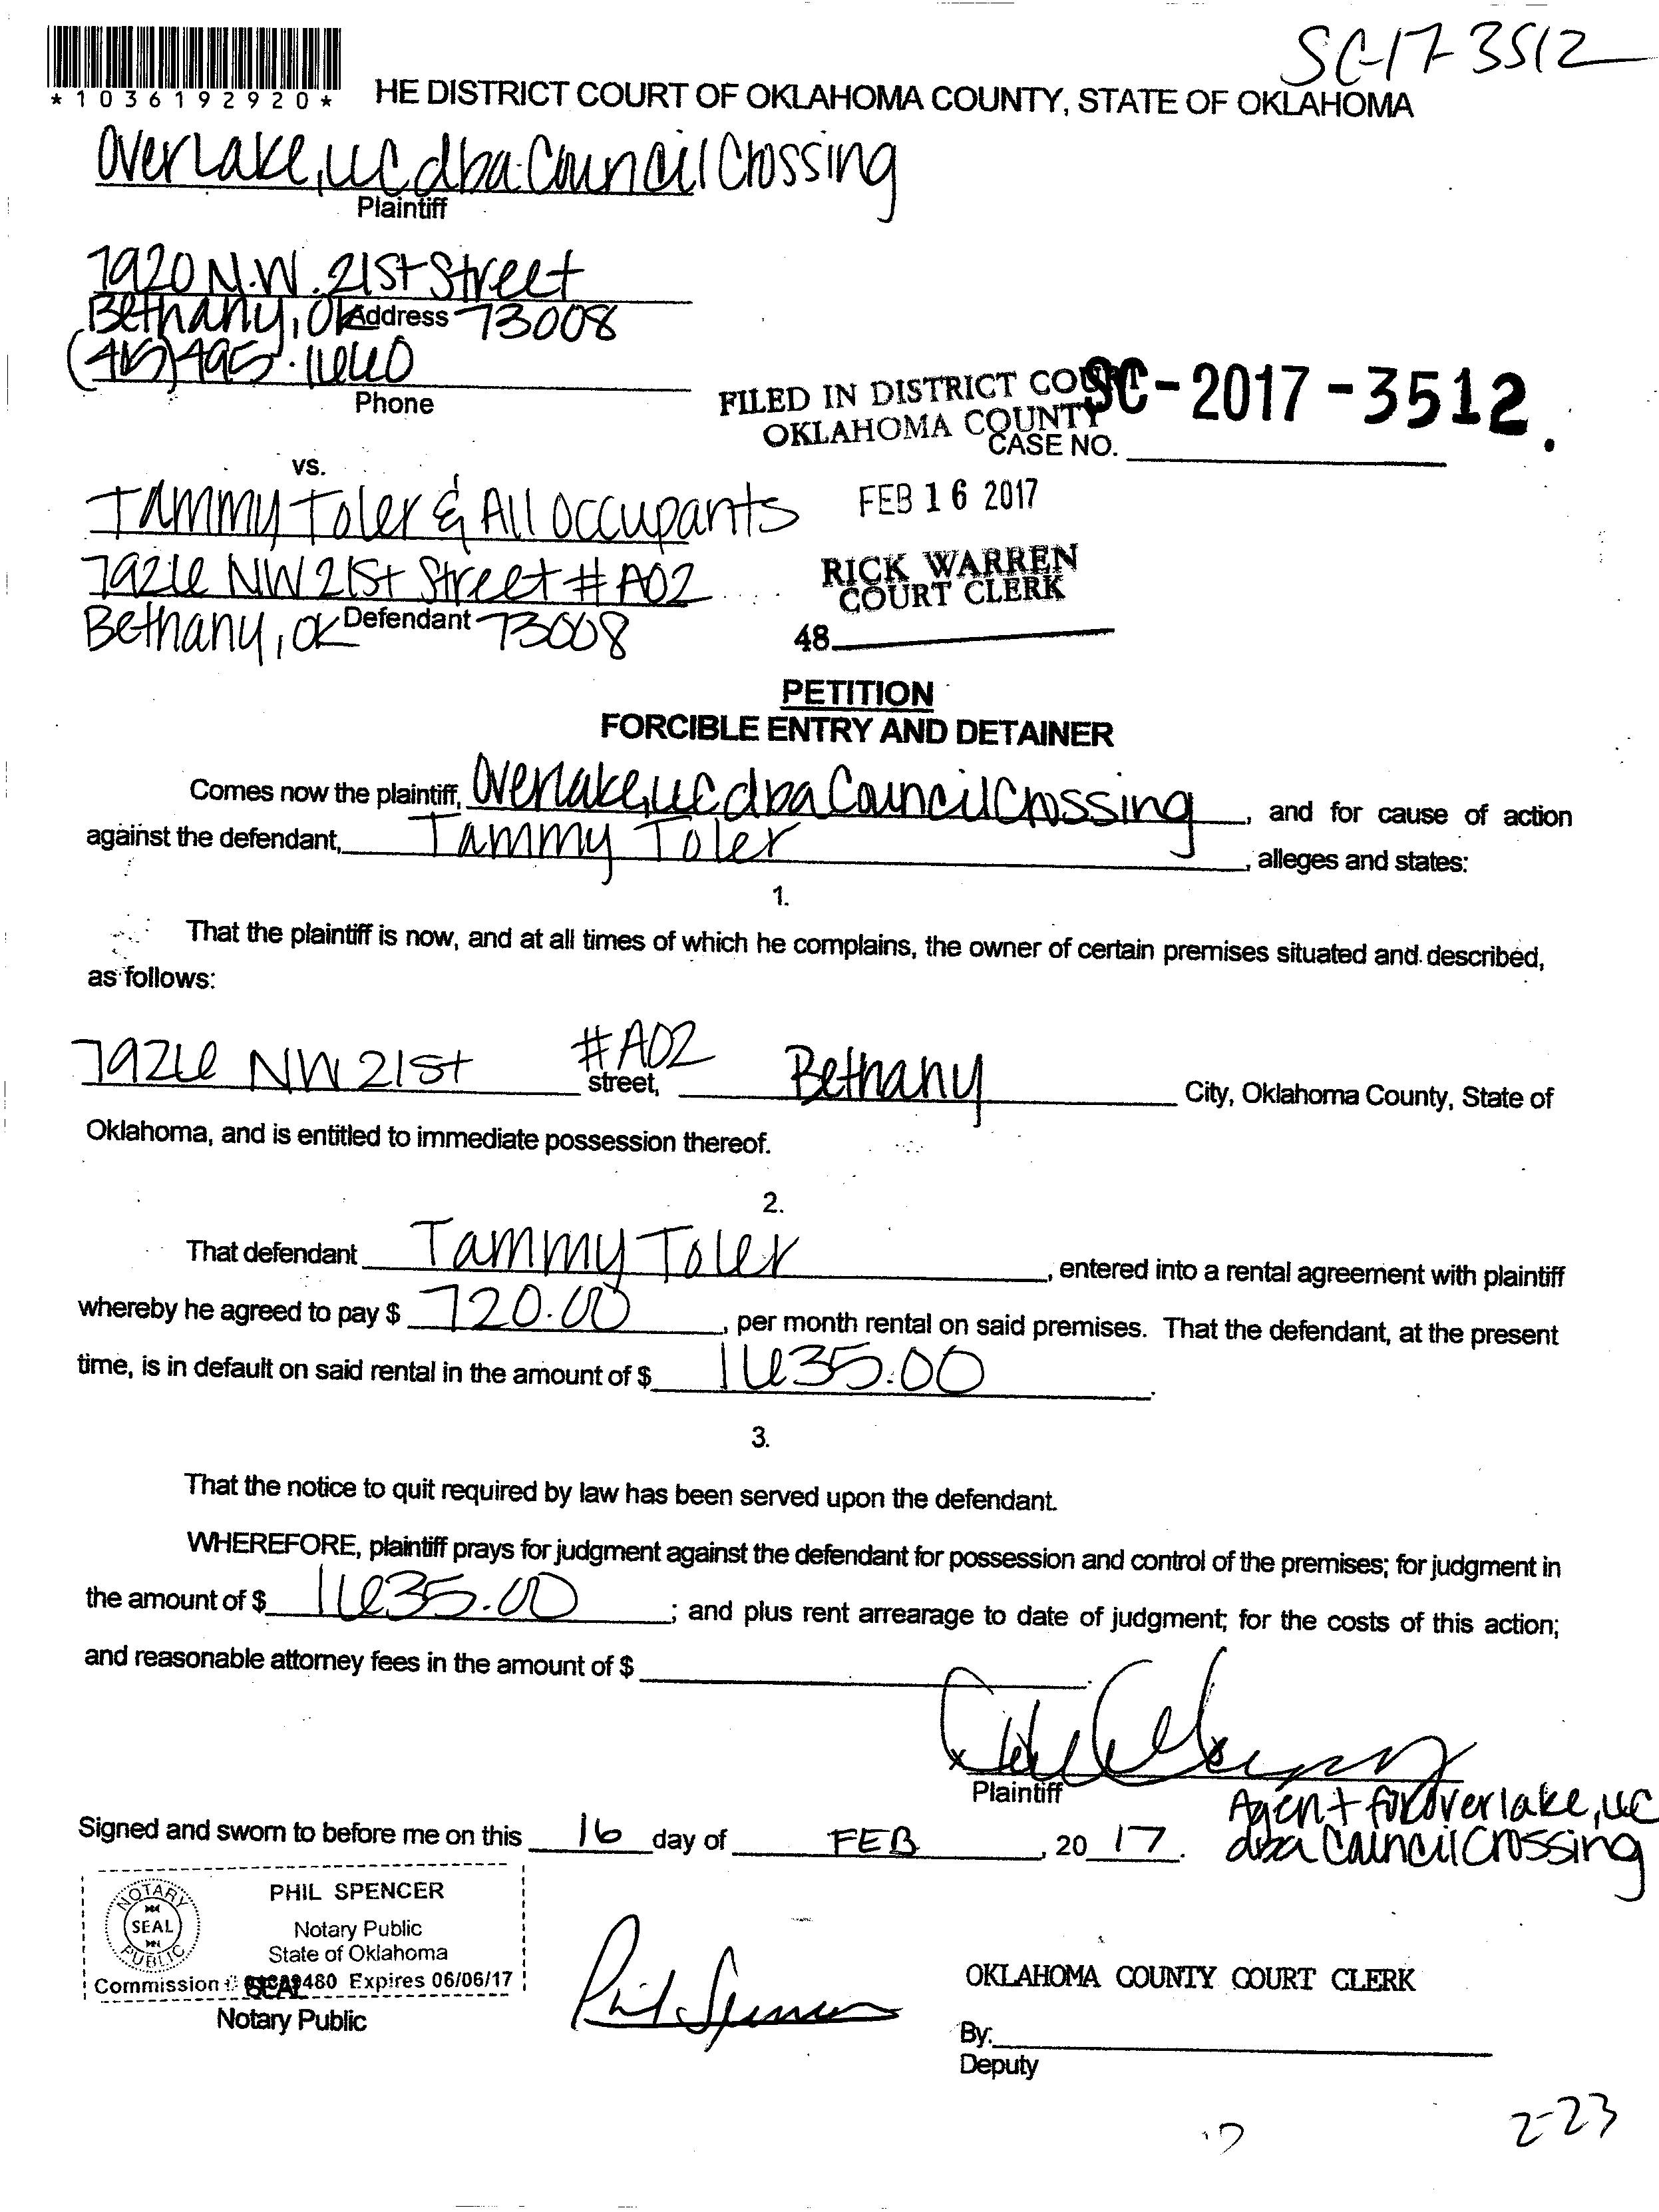 SC-17-3512
*1036192920*
HE DISTRICT COURT OF OKLAHOMA COUNTY, STATE OF OKLAHOMA
Overlake, LLC dba Council Crossing
Plaintiff
7920 N.W. 21st Street
Bethany, OK Address 73008
(405) 495-1660
Phone
FILED IN DISTRICT COURT
OKLAHOMA COUNTY
SC-2017-3512.
CASE NO.
vs.
Tammy Toler & All Occupants
FEB 16 2017
7926 NW 21st Street #A02
RICK WARREN
COURT CLERK
Bethany, OK Defendant 73008
48
PETITION
FORCIBLE ENTRY AND DETAINER
Comes now the plaintiff, Overlake, LLC dba Council Crossing, and for cause of action
against the defendant, Tammy Toler, alleges and states:
1.
That the plaintiff is now, and at all times of which he complains, the owner of certain premises situated and described,
as follows:
7926 NW 21st #A02 street, Bethany City, Oklahoma County, State of
Oklahoma, and is entitled to immediate possession thereof.
2.
That defendant Tammy Toler, entered into a rental agreement with plaintiff
whereby he agreed to pay $ 720.00, per month rental on said premises. That the defendant, at the present
time, is in default on said rental in the amount of $ 1635.00.
3.
That the notice to quit required by law has been served upon the defendant.
WHEREFORE, plaintiff prays for judgment against the defendant for possession and control of the premises; for judgment in
the amount of $ 1635.00; and plus rent arrearage to date of judgment; for the costs of this action;
and reasonable attorney fees in the amount of $
x
Plaintiff
Agent for Overlake, LLC
dba Council Crossing
Signed and sworn to before me on this 16 day of FEB, 20 17.
NOTARY PUBLIC SEAL
PHIL SPENCER
Notary Public
State of Oklahoma
Commission # 480 Expires 06/06/17
SEAL
Notary Public
Phil Spencer
OKLAHOMA COUNTY COURT CLERK
By:
Deputy
2-23